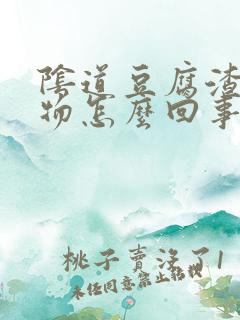 陰道豆腐渣
物怎麼回事
桃子賣沒了1
未经同意禁止转载